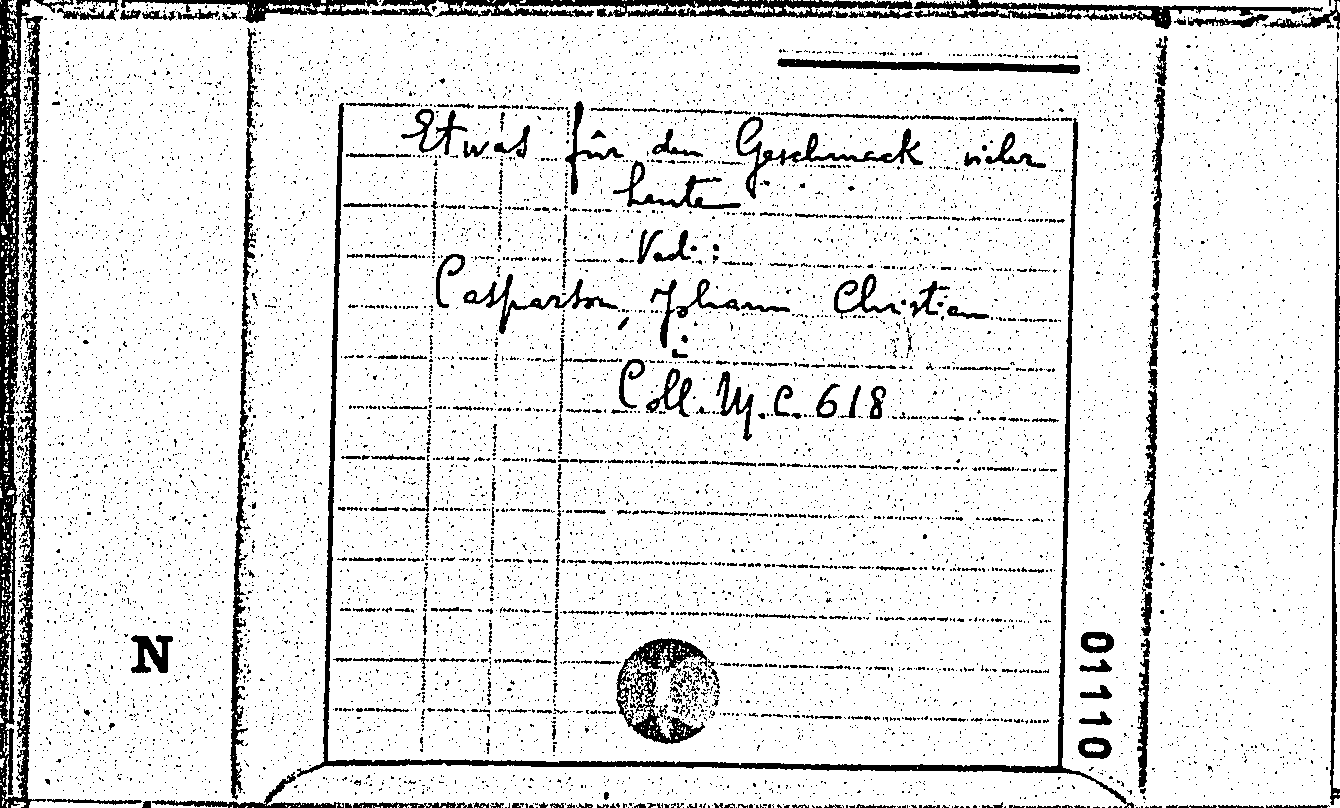 Etwas für den Geschmack vieler
Leute
Casparson, Johann Christian
i:
Coll. M.C. 618
N
01110